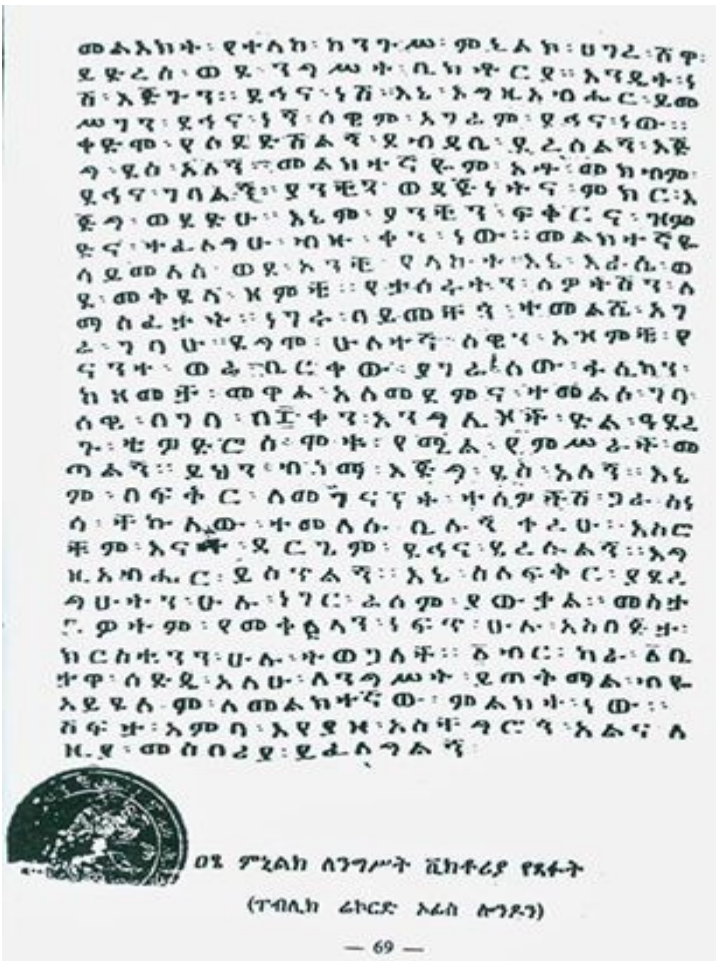 መልእክት፡ የተላከ፡ ከንጉሥ፡ ምኒልክ፡ ሀገረ፡ ሸዋ፡
ይድረስ፡ ወደ፡ ንግሥት፡ ቢክቶርያ። እንዴት፡ ነ
ሽ፡ እጅጉን። ደኅና፡ ነሽ። እኔ፡ እግዚአብሔር፡ ይመ
ሥገን፡ ደኅና፡ ነኝ፡ ሰዌም፡ አገሬም፡ ደኅና፡ ነው።
ቀድሞ፡ የሰደድሽልኝ፡ ደብዳቤ፡ ደረሰልኝ፡ እጅ
ግ፡ ደስ፡ አለኝ። መልክተኛዬም፡ አቶ፡ መክብብ፡
ደኅና፡ ገባልኝ። ያንቺን፡ ወዳጅነትና፡ ምክር፡ እ
ጅግ፡ ወደድሁ። እኔም፡ ያንቺን፡ ፍቅርና፡ ዝም
ድና፡ ተፈለግሁ፡ ብዙ፡ ቀን፡ ነው። መልክተኛዬ
ሳይመለስ፡ ወደ፡ አንቺ፡ የላከት፡ እኔ፡ እራሴ፡ ወ
ደ፡ መቅደላ፡ ዘምቼ። የታሰሩትን፡ ሰዎትሽን፡ ለ
ማስፈታት። ነገሩ፡ በይመቸኝ፡ ተመልሼ፡ አገ
ሬ፡ ገባሁ። ደግሞ፡ ሁለተኛ፡ ሰዌን፡ አዝምቼ፡ የ
ናንተ፡ ወሬ
ከዘመቻ፡ መዋሐ፡ አለመደምና፡ ተመልሶ፡ ገባ፡
ሰዌ፡ በገባ፡ ቀን፡ እንግሊዞች፡ ድል፡ ዓደረ
ጉ፡ ቴዎድሮስ፡ ሞቱ፡ የሚል፡ የምሥራች፡ መ
ጣልኝ። ይህን፡ ብሰማ፡ እጅግ፡ ደስ፡ አለኝ። እኔ
ም፡ በፍቅር፡ ለመገናኘት፡ ተሰዎችሽ፡ ጋራ፡ ስነ
ሳ፡ ቸኩለው፡ ተመለሱ፡ ቢሉኝ፡ ቀረሁ። አስሮ
ቸም፡ እና ደርጊም፡ ደኅና፡ ደረሱልኝ። እግ
ዚአብሔር፡ ይስጥልኝ። እኔ፡ ስለፍቅር፡ ያደረ
ግሁትን፡ ሁሉ፡ ነገር፡ ራሰም፡ ያውቃል። መስታ
ዎትም፡ የመቅደላን፡ ነፍጥ፡ ሁሉ፡ አስበጅታ፡
ክርስቲንን፡ ሁሉ፡ ትወጋለች።
ታዋ፡ ሰድጄ፡ አለሁ፡ ለንግሥት፡ ይጠትማል፡ ብዬ
አይደለም፡ ለመልክተኛነው፡ ምልክት፡ ነው።
ሽፍታ፡ አምባ፡ እየያዘ፡ አስቸግሮኝ፡ አልና፡ ለ
ዚያ፡ መስበሪያ፡ ይፈለግልኝ
ዐፄ ምኒልክ ለንግሥት ቪክቶሪያ የጻፉት
(ፐብሊክ ሬኮርድ ኦፊስ ሎንዶን)
— 69 —